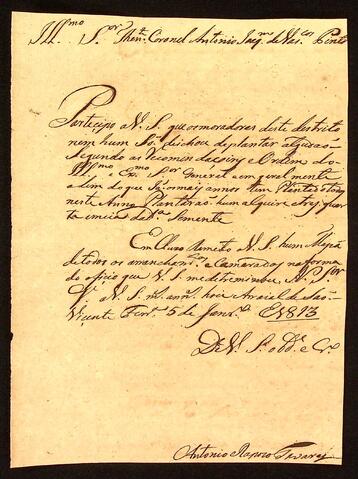 Ill.mo S.or Then.e Coronel Antonio Joaq.m de Vas.cos Pinto
Participo a V. S. que os moradores deste destrito
nem hum So deichou de plantar algudão
Segundo as Recomendaçoins e Ordem do
Ill.mo e Ex.mo Snr General e emGeral mente
alem do que Ja os mais annos tem Plantado
neste Anno Plantarão hum alqueire e trez quar
ta emeia da d.a Semente
Em Cluzo Remeto a V. S. hum Mapa
de todos os e Camaradas na forma
do oficio que V. S. me detreminou
a V. S. m.s ann.s hoie Arraial de São
Vicente Ferr.a 5 de Janr.o de 1813
De V. S. obd.e e Cr.o
Antonio Raposo Tavares